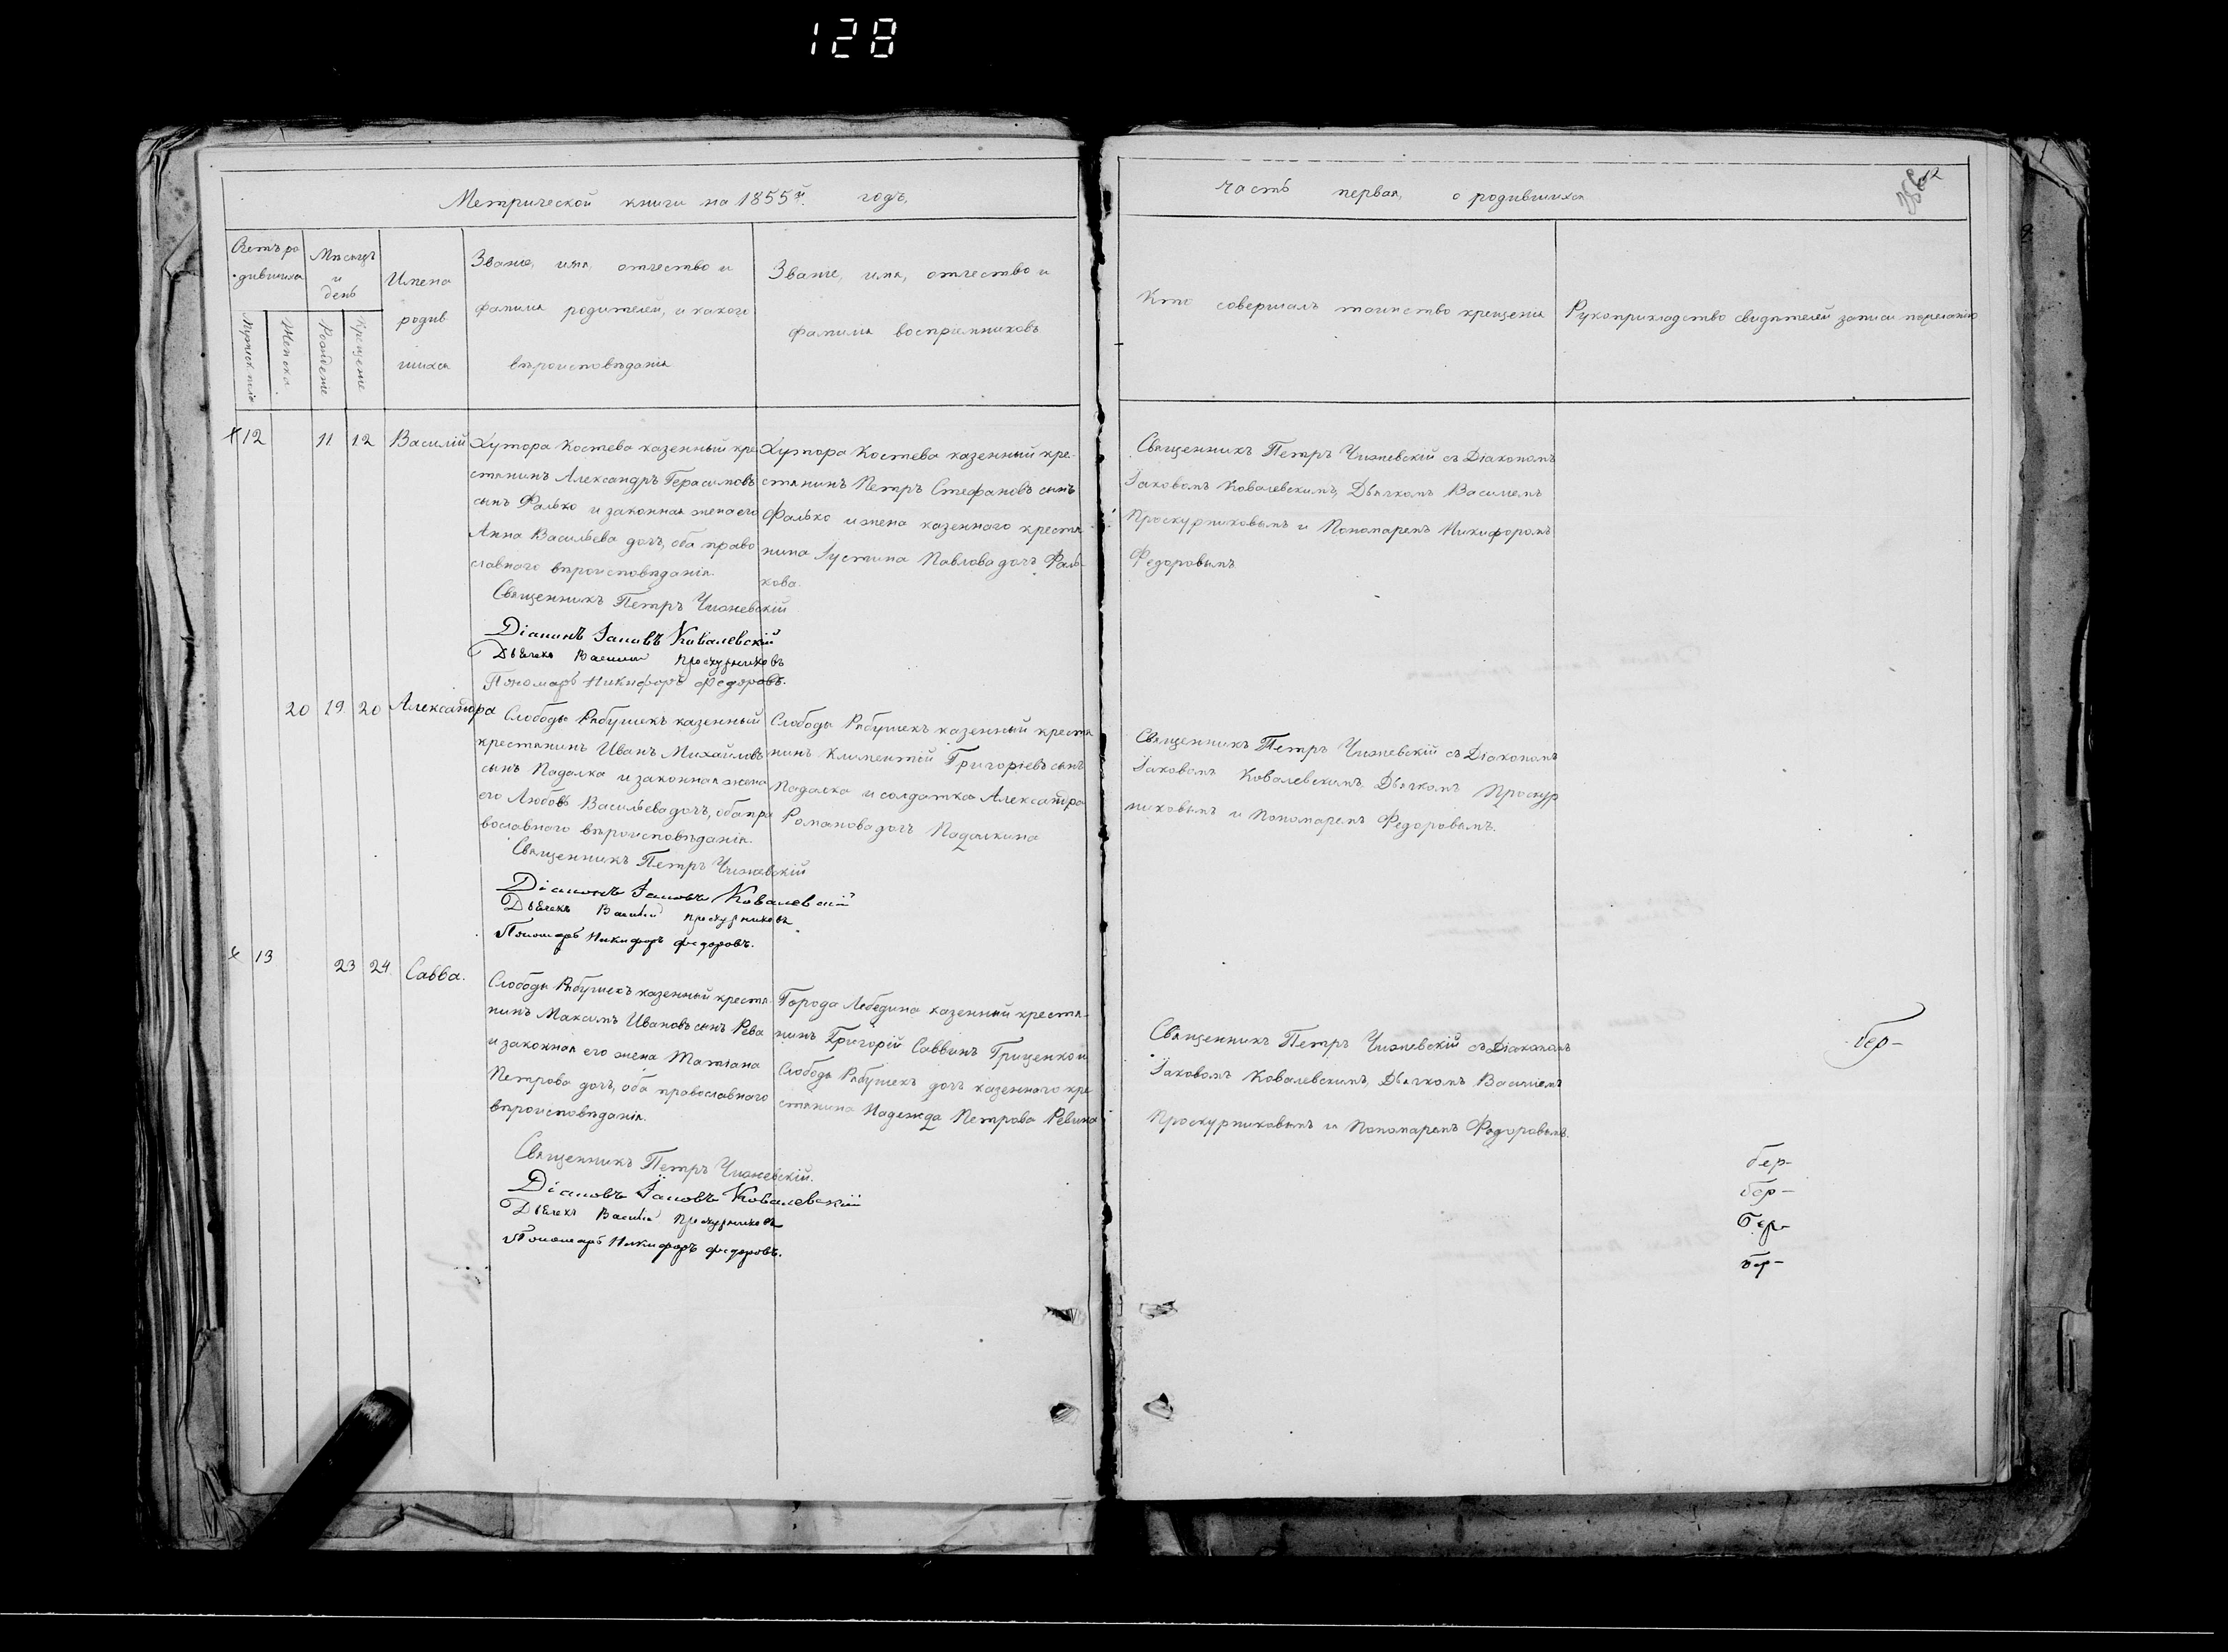 128
Метрической книги на 1855й годъ,
Счетъ ро
дившихся
Мѣсяцъ
и
день
Имена
родив
шихся
Званіе, имя, отчество и
фамилія родителей, и какого
вѣроисповѣданія
Званіе, имя, отчество и
фамилія воспріемниковъ
Мужеск.
Женска
Рожденіе
Крещеніе
12 11 12 Василій
Хутора Костева казенный кре
стянинъ Александръ Герасимовъ
сынъ Фалько и законная жена его
Анна Васильева дочь, оба право
славнаго вѣроисповѣданія.
Священникъ Петръ Чижевскій
Діаконъ Іаковъ Ковалевскій
Дьячекъ Василій Проскурниковъ
Пономарь Никифоръ Федоровъ.
Хутора Костева казенный кре-
стянинъ Петръ Стефановъ сынъ
Фалько и жена казеннаго крестя
нина Іустина Павлова дочь Фаль-
кова.
20 19. 20 Александра
Слободы Рябушекъ казенный
крестянинъ Иванъ Михайловъ
сынъ Падалка и законная жена
его Любовь Васильева дочь, оба пра
вославнаго вѣроисповѣданія.
Священникъ Петръ Чижевскій
Діаконъ Іаковъ Ковалевскій
Дьячекъ Василій Проскурниковъ
Пономарь Никифоръ Федоровъ.
Слободы Рябушекъ казенный крестя
нинъ Климентій Григоріевъ сынъ
Падалка и солдатка Александра
Романова дочь Падалкина
13 23 24. Савва.
Слободы Рябушекъ казенный крестя-
нинъ Максимъ Ивановъ сынъ Рева
и законная его жена Татіана
Петрова дочь, оба православнаго
вѣроисповѣданія.
Священникъ Петръ Чижевскій.
Діаконъ Іаковъ Ковалевскій
Дьячекъ Василій Проскурниковъ
Пономарь Никифоръ Федоровъ.
Города Лебедина казенный крестя-
нинъ Григорій Саввинъ Гриценко и
Слободы Рябушекъ дочь казеннаго кре
стянина Надежда Петрова Ревина
Часть первая, о родившихся
Кто совершалъ таинство крещенія
Рукоприкладство свидѣтелей записи
Священникъ Петръ Чижевскій съ Діакономъ
Іаковомъ Ковалевскимъ, Дьячкомъ Василіемъ
Проскурниковымъ и Пономаремъ Никифоромъ
Федоровымъ
Священникъ Петръ Чижевскій съ Діакономъ
Іаковомъ Ковалевскимъ, Дьячкомъ Проскур
никовымъ и Пономаремъ Федоровымъ.
Священникъ Петръ Чижевскій съ Діакономъ
Іаковомъ Ковалевскимъ, Дьячкомъ Василіемъ
Проскурниковымъ и Пономаремъ Федоровымъ.
бер-
бер-
бер-
бер-
бер-